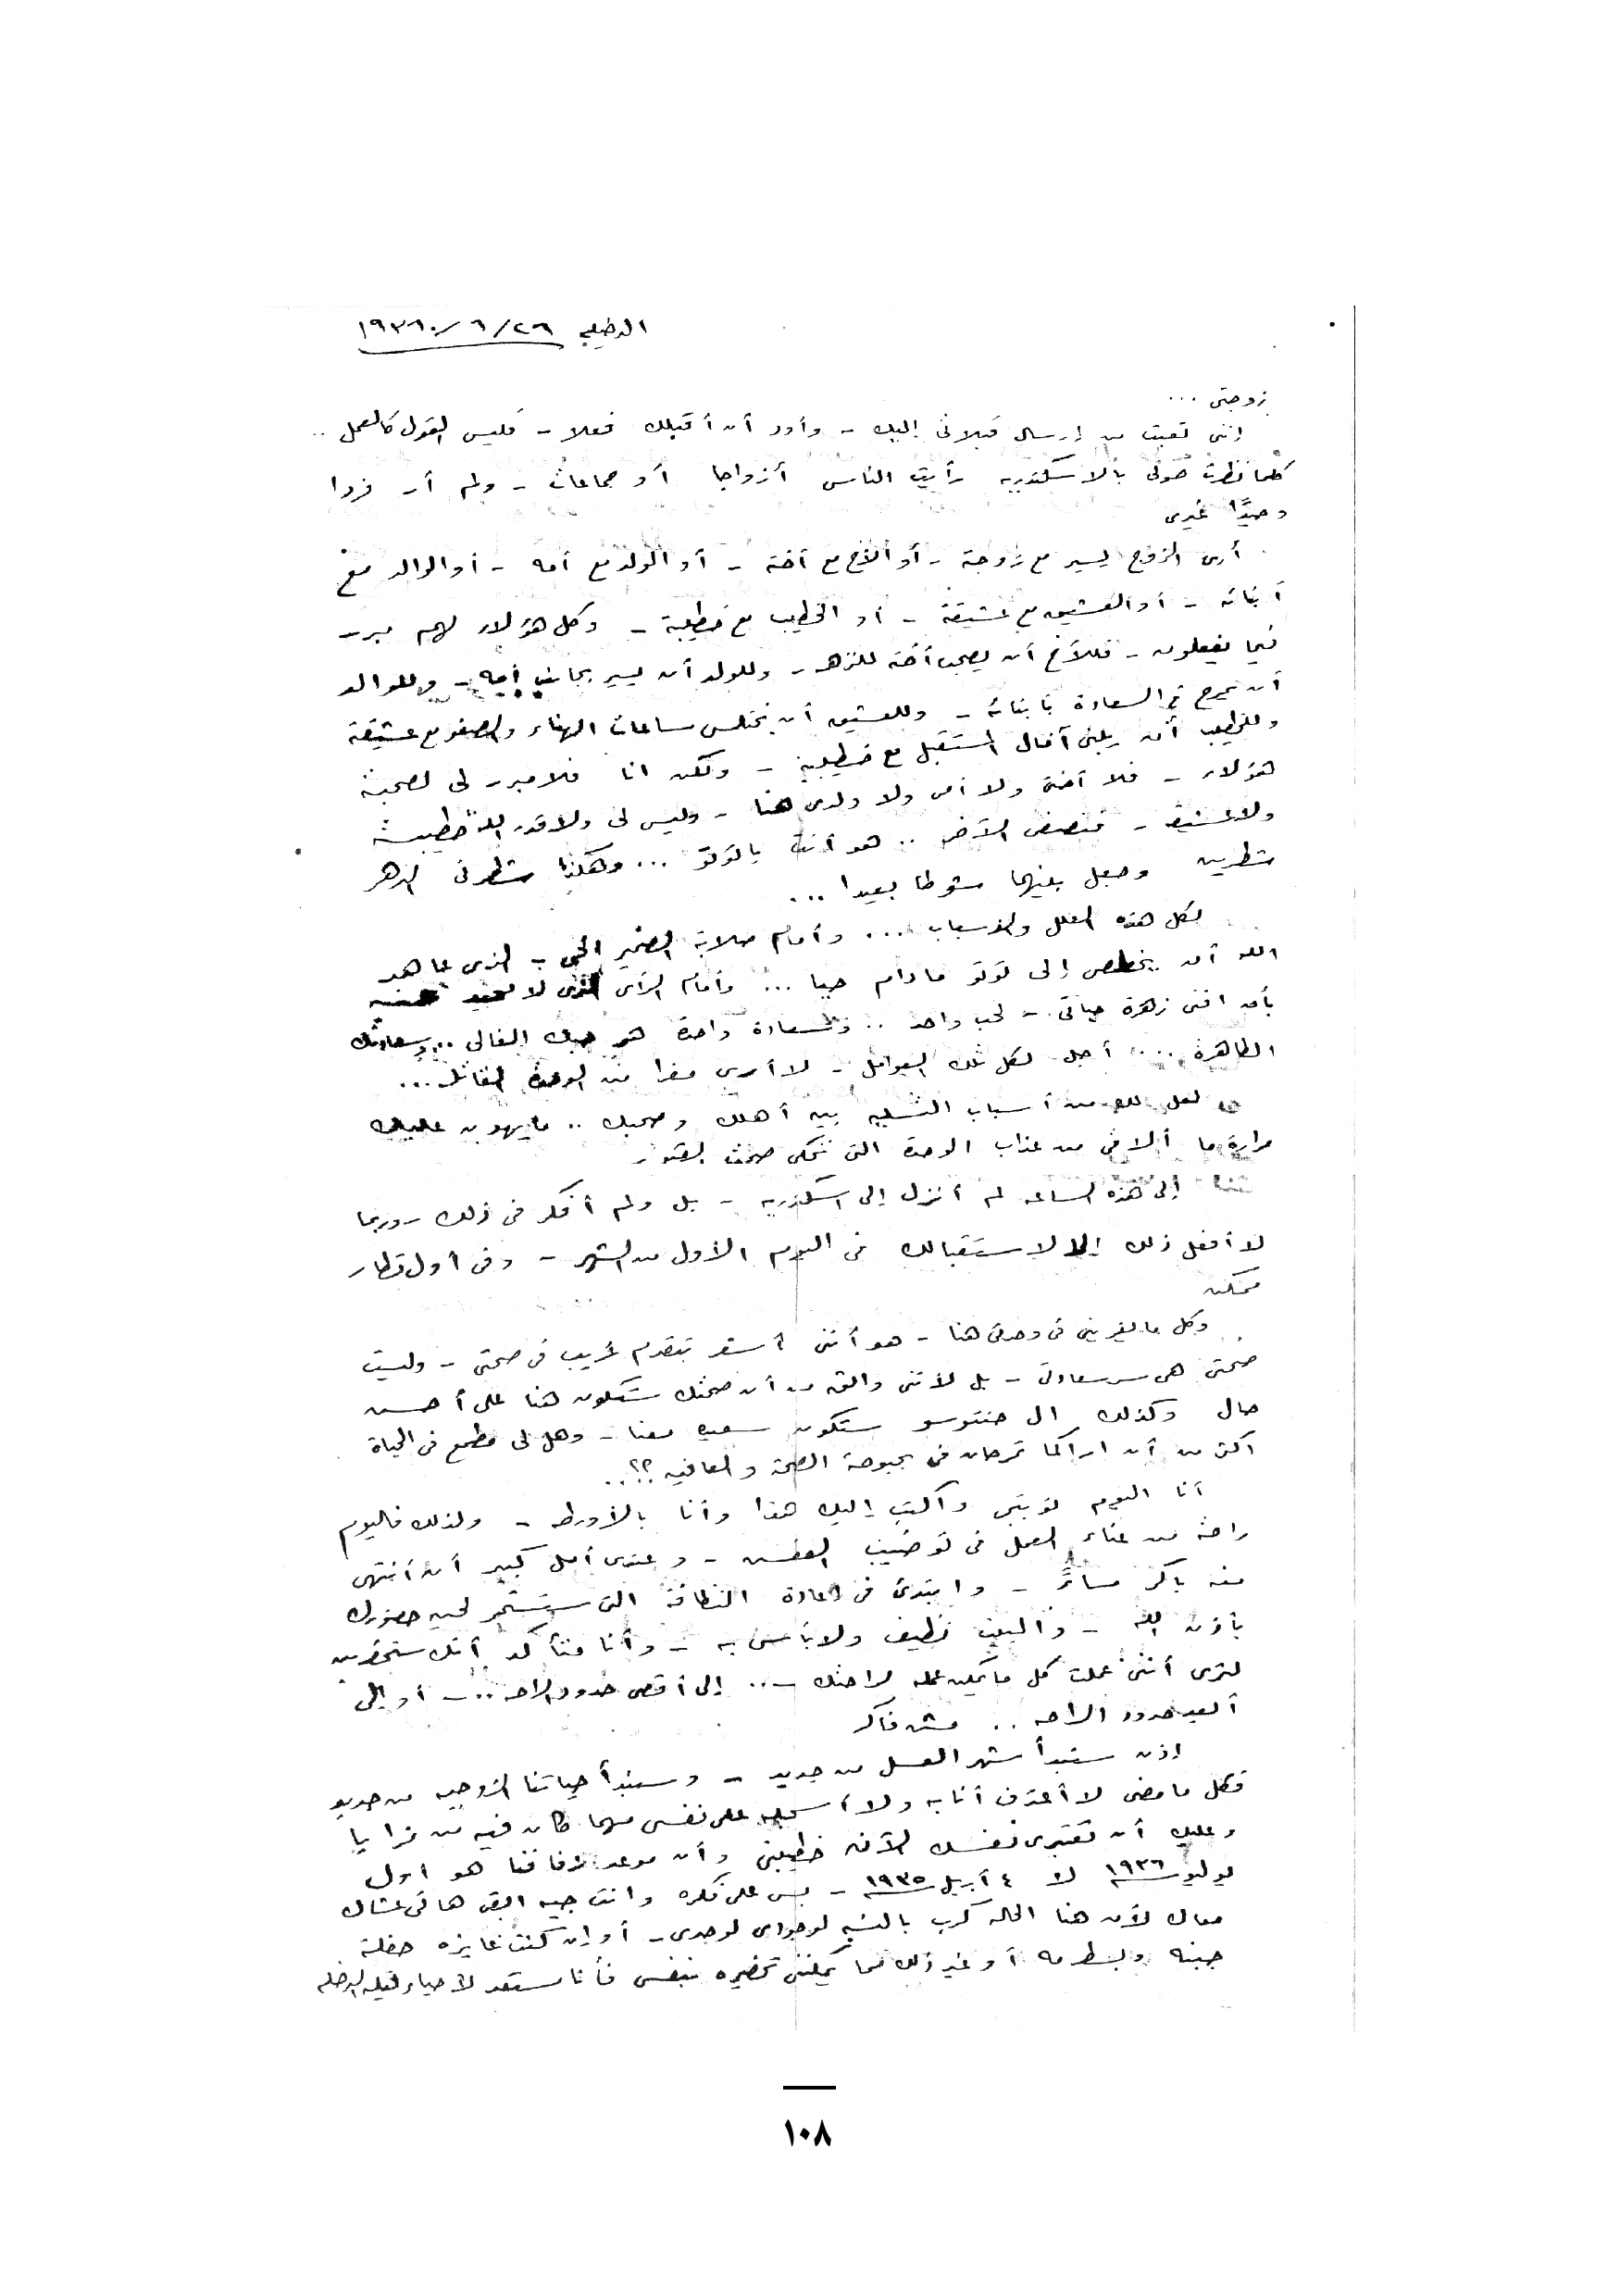 الدخيله ٢٦/٦/١٩٣٦
زوجتى ...
إننى تعبت من إرسال قبلاتى إليك - وأود أن أقبلك فعلا - فليس القول كالعمل ..
كلما نظرت حولى بالاسكندريه رأيت الناس أزواجا أو جماعات - ولم أر فردا
وحيدًا غيرى
أرى الزوج يسير مع زوجة - أو الأخ مع أخته - أو الولد مع أمه - أو الوالد مع
أبنائه - أو العشيق مع عشيقة - أو الخطيب مع خطيبة - وكل هؤلاء لهم مبرر
فيما يفعلون - فللأخ أن يصحب أخته للنزهه - وللولد أن يسير بجانب أمه - وللوالد
أن يمرح فى السعادة بأبنائه - وللعشيق أن يختلس ساعات الهناء والصفو مع عشيقة
وللخطيب أن يبنى آمال المستقبل مع خطيبة - ولكن انا فلا مبرر لى لصحبة
هؤلاء - فلا أختى ولا أمى ولا ولدى هنا - وليس لى ولا قدر الله خطيبة
ولا عشيقة - فنصفى الآخر .. هو أنت يا توتو ... وهكذا شطرنى الدهر
شطرين وجعل بينهما شوطا بعيدا ...
لكل هذه العلل والأسباب .... وأمام صلابة الضمير الحى - الذى عاهد
الله أن يخلص إلى توتو مادام حيا ... وأمام الرأى الذى لا
بأن افنى زهرة حياتى - لحب واحد .. ولسعادة واحدة هو حبك الغالى .. وسعادتك
الطاهرة ... أجل لكل تلك العوامل - لا أرى مفرا من الوحدة القاتلة ...
لعل لك من أسباب التسليه بين أهلك وصحبك .. ما يهون عليك
مرارة ما ألاقى من عذاب الوحدة التى تحكى صمت القبور
إلى هذه الساعه لم أنزل إلى اسكندريه - بل ولم أفكر فى ذلك - وربما
لا أفعل ذلك إلا لاستقبالك فى اليوم الأول من الشهر - وفى أول قطار
ممكن
وكل ما يغرينى فى وحدتى هنا - هو أننى أشعر بتقدم غريب فى صحتى - وليست
صحتى هى سر سعادتى - بل لأننى واثق من أن صحتك ستكون هنا على أحسن
حال وكذلك ال حنتوسو ستكون سعيده معنا - وهل لى مطمع فى الحياة
اكثر من أن اراكما تمرحان فى بحبوحة الصحة والعافيه ؟؟..
أنا اليوم نوبتجى وأكتب إليك هذا وأنا بالأورطه - ولذلك فاليوم
راحة من عناء العمل فى توضيب العفش - وعندى أمل كبير أن أنتهى
منه باكر مساءً - وابتدئ فى إعادة النظافة التى ستستمر لحين حضورك
بأذن الله - والبيت نظيف ولا بأس به - وأنا متأكد أنك ستحضرين
لترى أننى عملت كل ما يمكن عمله لراحتك ... إلى أقصى حدود الراحه .. - أو إلى
أبعد حدود الراحه .. مش فاكر
إذن سنبدأ شهر العسل من جديد - وسنبدأ حياتنا الزوجيه من جديد
فكل ما مضى لا أعترف أنا به ولا أسجله على نفسى مهما كان فيه من مزايا
وعليك أن تعتبرى نفسك الآن خطيبتى وأن موعد زفافنا هو أول
يوليو ١٩٣٦ لا ٤ أبريل ١٩٣٥ - بس على فكره وانت جيه ابقى هاتى عشاك
معاك لأن هنا الحاله كرب بالنسبه لوجودى لوحدى - أو إن كنت عايزه حفلة
جبنه وبسطرمه أو غير ذلك مما يمكننى تحضيره بنفسى فأنا مستعد لأحياء ليلة الدخله
١٠٨